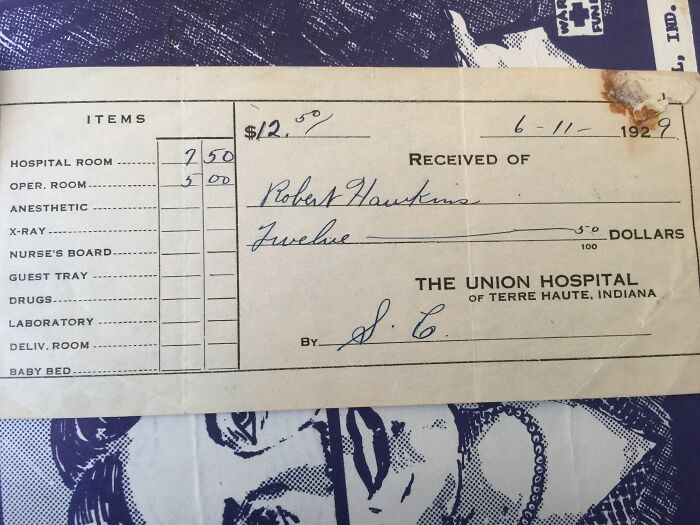 WAR
FUND
L, IND.
ITEMS
HOSPITAL ROOM 7 50
OPER. ROOM 5 00
ANESTHETIC
X-RAY
NURSE'S BOARD
GUEST TRAY
DRUGS
LABORATORY
DELIV. ROOM
BABY BED
$12. 50/ 6-11- 1929
RECEIVED OF
Robert Hawkins
Twelve 50/100 DOLLARS
THE UNION HOSPITAL
OF TERRE HAUTE, INDIANA
BY S. C.